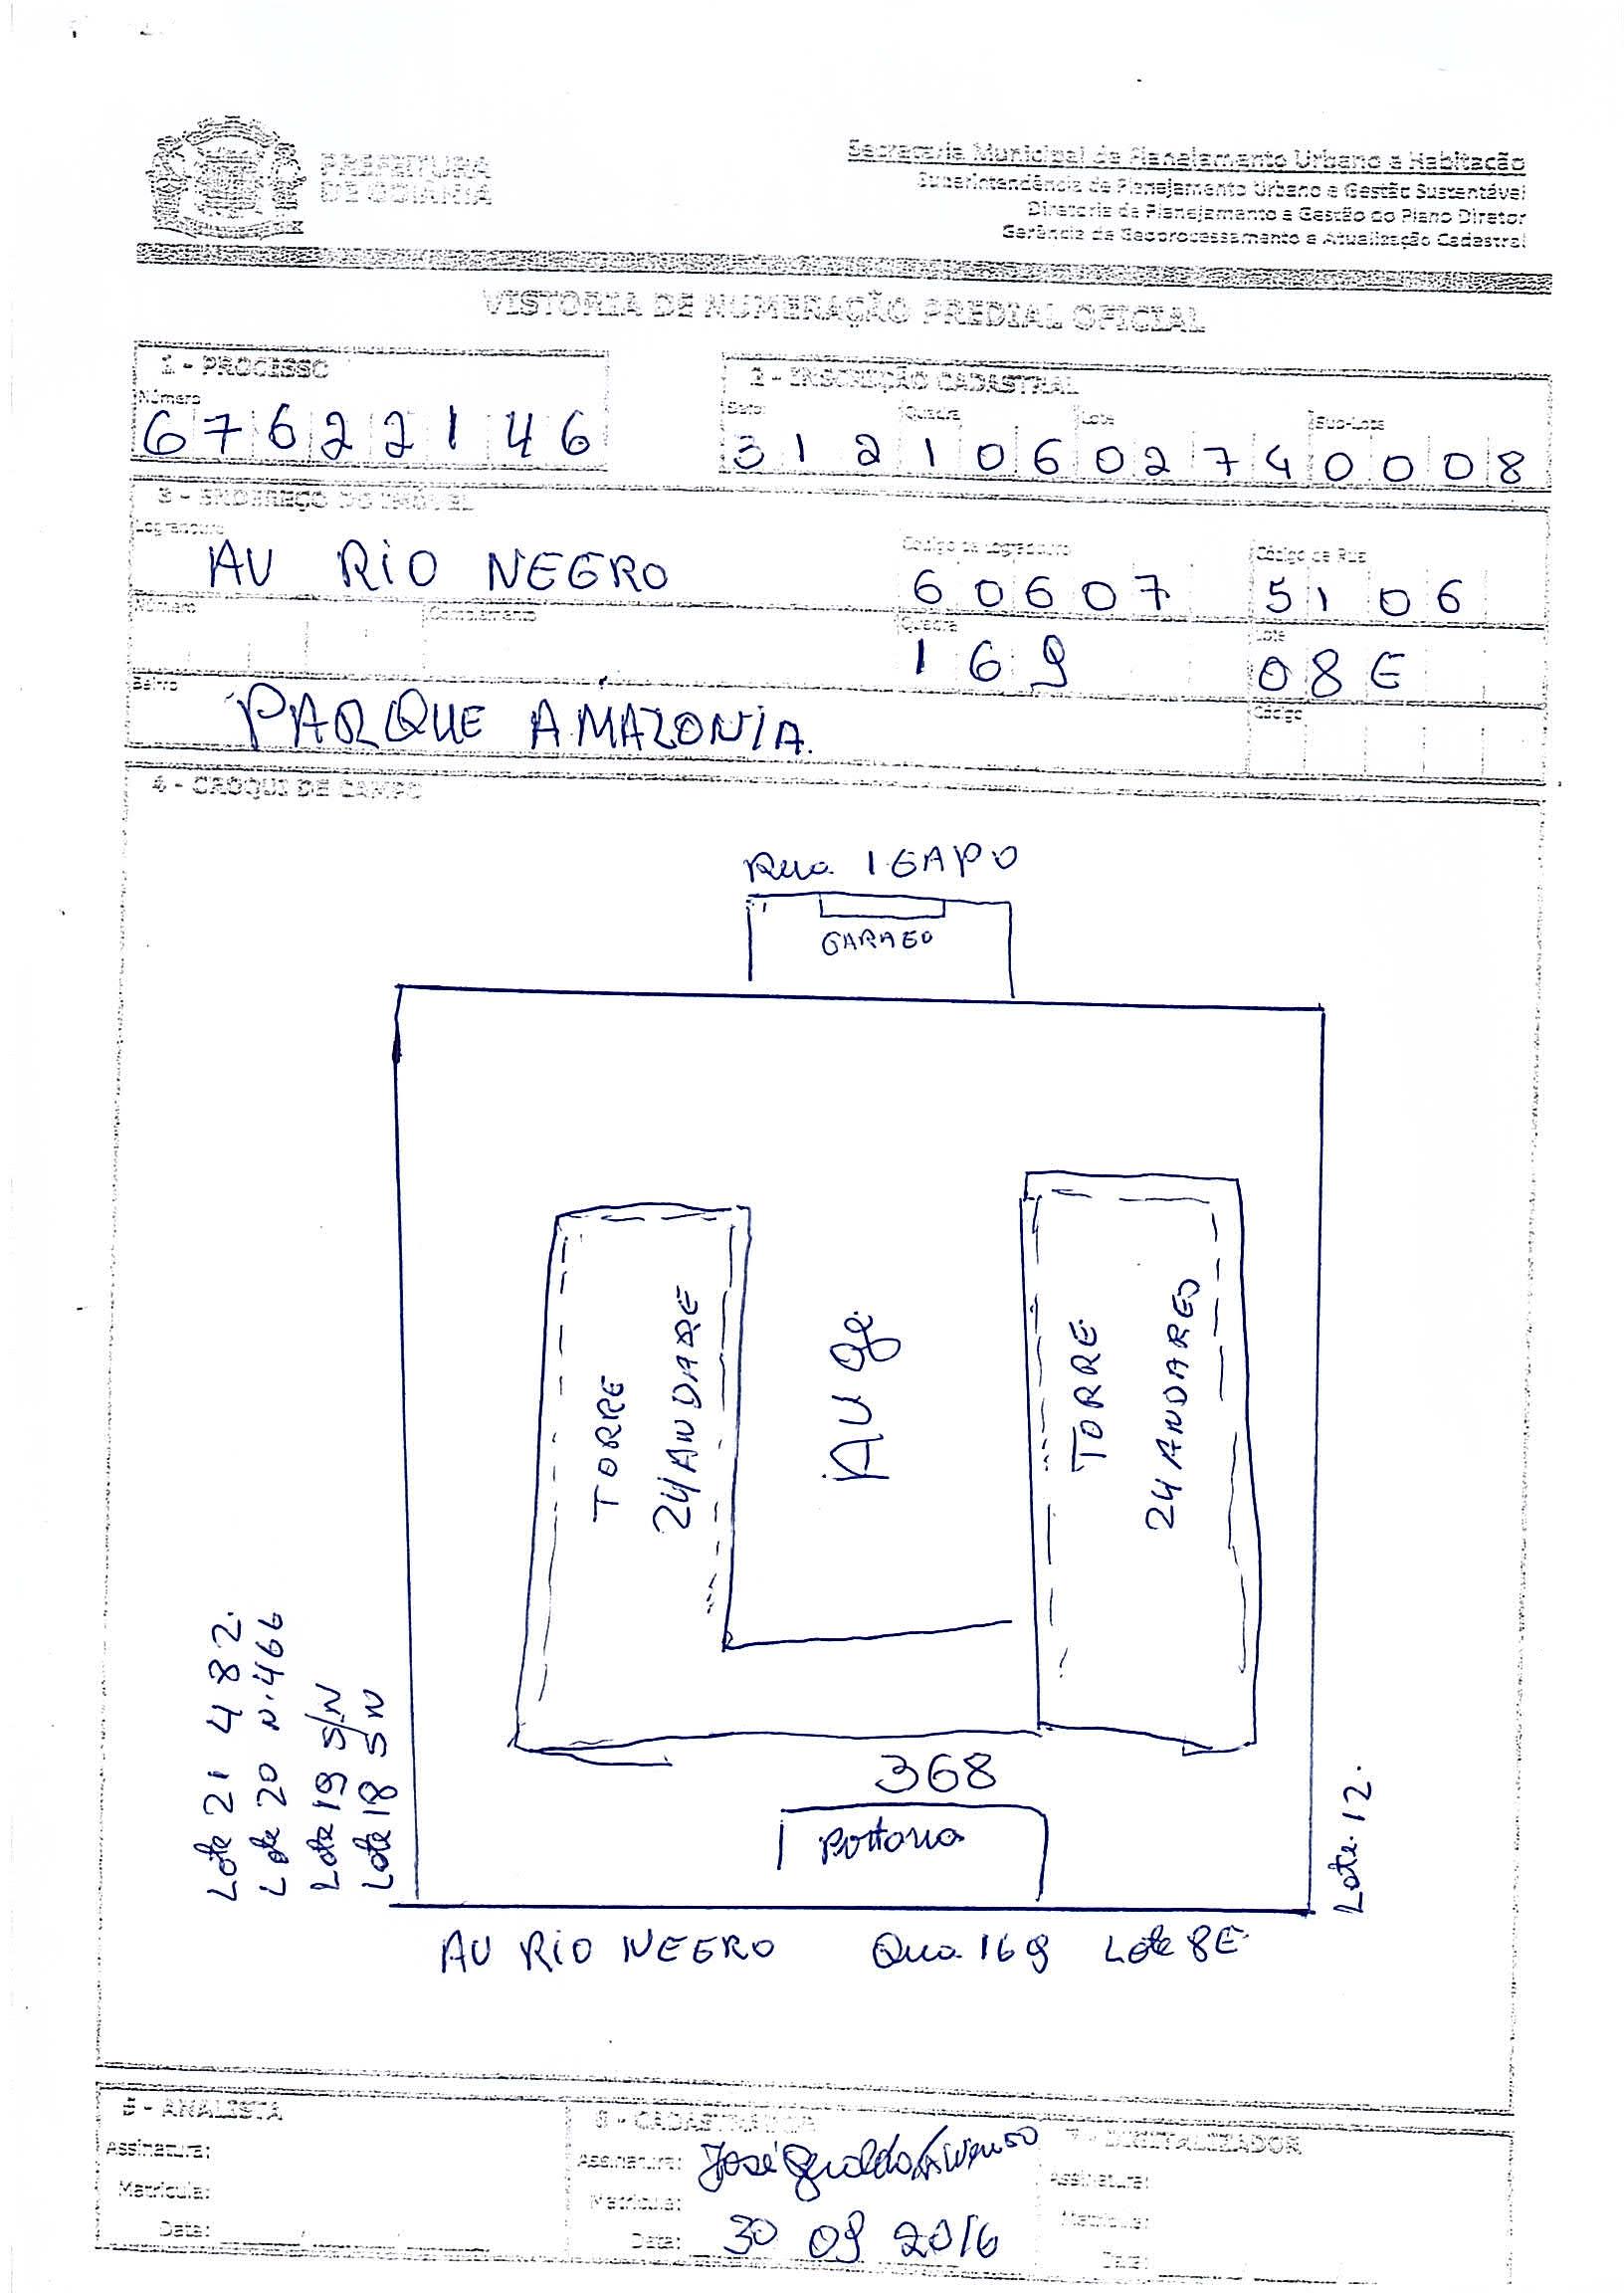 PREFEITURA
DE GOIÂNIA
Secretaria Municipal de Planejamento Urbano e Habitação
Superintendência de Planejamento Urbano e Gestão Sustentável
Diretoria de Planejamento e Gestão do Plano Diretor
Gerência de Geoprocessamento e Atualização Cadastral
VISTORIA DE NUMERAÇÃO PREDIAL OFICIAL
1 - PROCESSO
Número
67622146
2 - INSCRIÇÃO CADASTRAL
Setor Quadra Lote Sub-Lote
31210602740008
3 - ENDEREÇO DO IMÓVEL
Logradouro Código de Logradouro Código de Rua
AV RIO NEGRO 60607 5106
Número Complemento Quadra Lote
169 08E
Bairro Código
PARQUE AMAZONIA.
4 - CROQUI DE CAMPO
Rua IGAPO
GARAGO
TORRE
24 ANDARE
TORRE
24 ANDARES
Lote 21 482.
Lote 20 N. 466
Lote 19 S/N
Lote 18 SN
368
Portaria
Lote 12.
AV RIO NEGRO Qua. 169 Lote 8E
5 - ANALISTA
Assinatura:
Matrícula:
Data:
6 - CADASTRADOR
Assinatura: José Geraldo
Matrícula:
Data: 30 09 2016
7 - DIGITALIZADOR
Assinatura:
Matrícula:
Data: